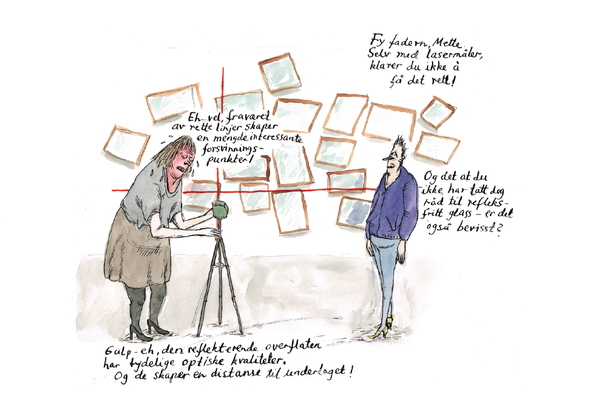 Fy fadern, Mette
Selv med lasermåler,
klarer du ikke å
få det rett!
Eh vel, fraværet
av rette linjer skaper
en mengde interessante
forsvinnings-
punkter!
Og det at du
ikke har tatt deg
råd til refleks-
fritt glass – er det
også bevisst?
Gulp – eh, den reflekterende overflaten
har tydelige optiske kvaliteter.
Og de skaper en distanse til underlaget!